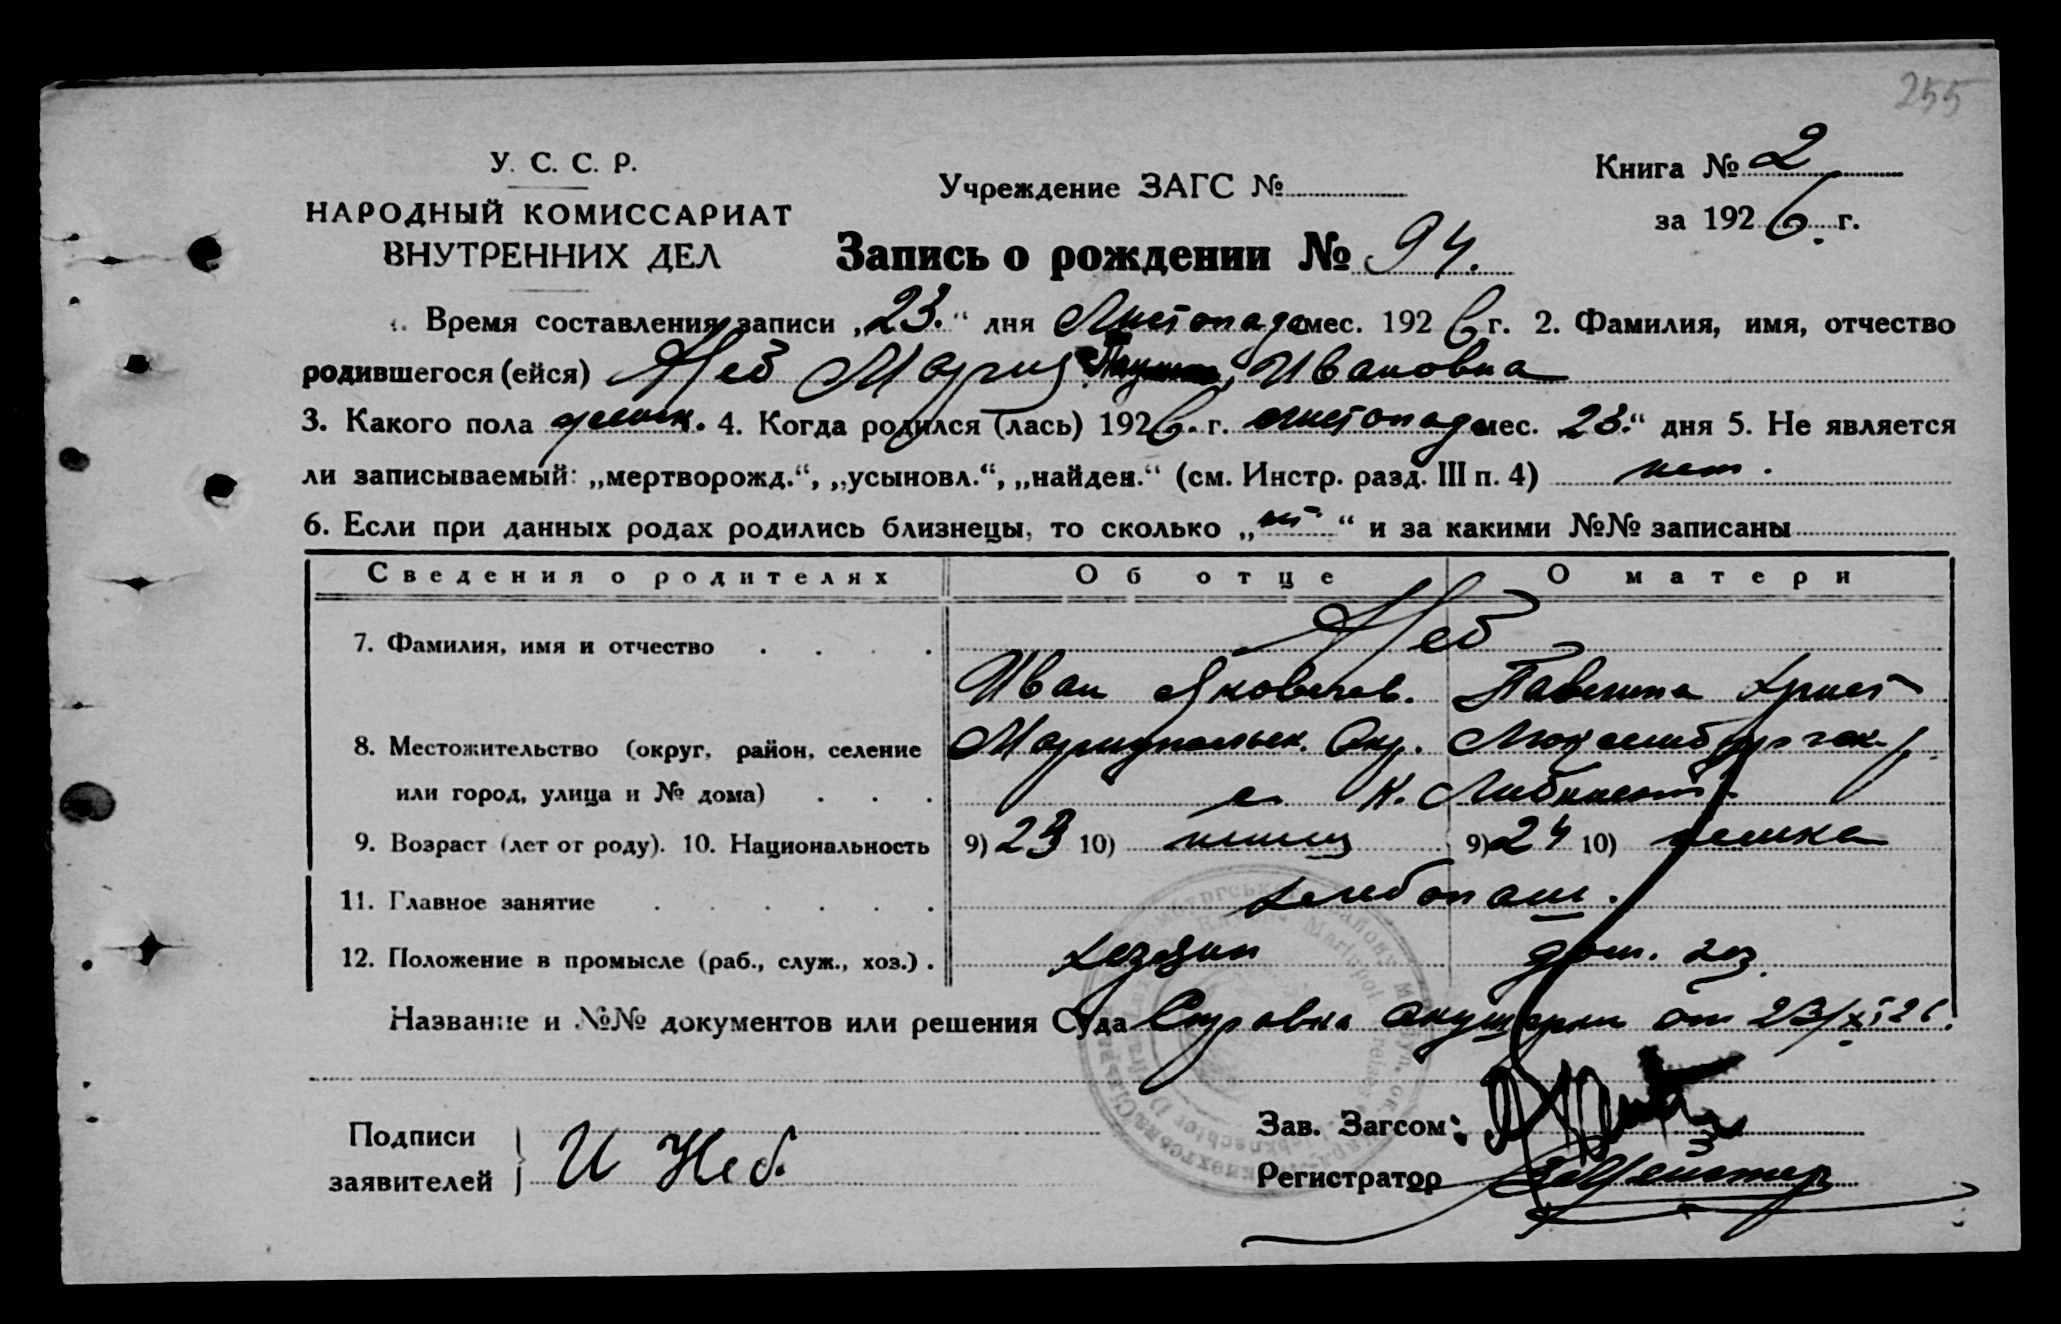 255
У. С. С. Р.
НАРОДНЫЙ КОМИССАРИАТ
ВНУТРЕННИХ ДЕЛ
Учреждение ЗАГС №
Книга № 2
за 1926 г.
Запись о рождении № 94.
1. Время составления записи „23.“ дня Листопада мес. 1926 г. 2. Фамилия, имя, отчество
родившегося (ейся) Неб Мария Ивановна
3. Какого пола женск. 4. Когда родился (лась) 1926. г. листопада мес. 23.“ дня 5. Не является
ли записываемый: „мертворожд.“, „усыновл.“, „найден.“ (см. Инстр. разд. III п. 4) нет.
6. Если при данных родах родились близнецы, то сколько „ “ и за какими №№ записаны
Сведения о родителях Об отце О матери
7. Фамилия, имя и отчество . . . . Неб
Иван Яковлев. Павлина Христ
8. Местожительство (округ, район, селение Мариупольск. Окр. Люксембургск.
или город, улица и № дома) . . . с. К. Либкнехт.
9. Возраст (лет от роду). 10. Национальность 9) 23 10) немец 9) 24 10) немка
11. Главное занятие . . . . . . хлебопаш.
12. Положение в промысле (раб., служ., хоз.) . хозяин дом. хоз.
Название и №№ документов или решения Суда Справка акушерки от 23/XI 26.
Подписи
заявителей } И Неб.
Зав. Загсом:
Регистратор